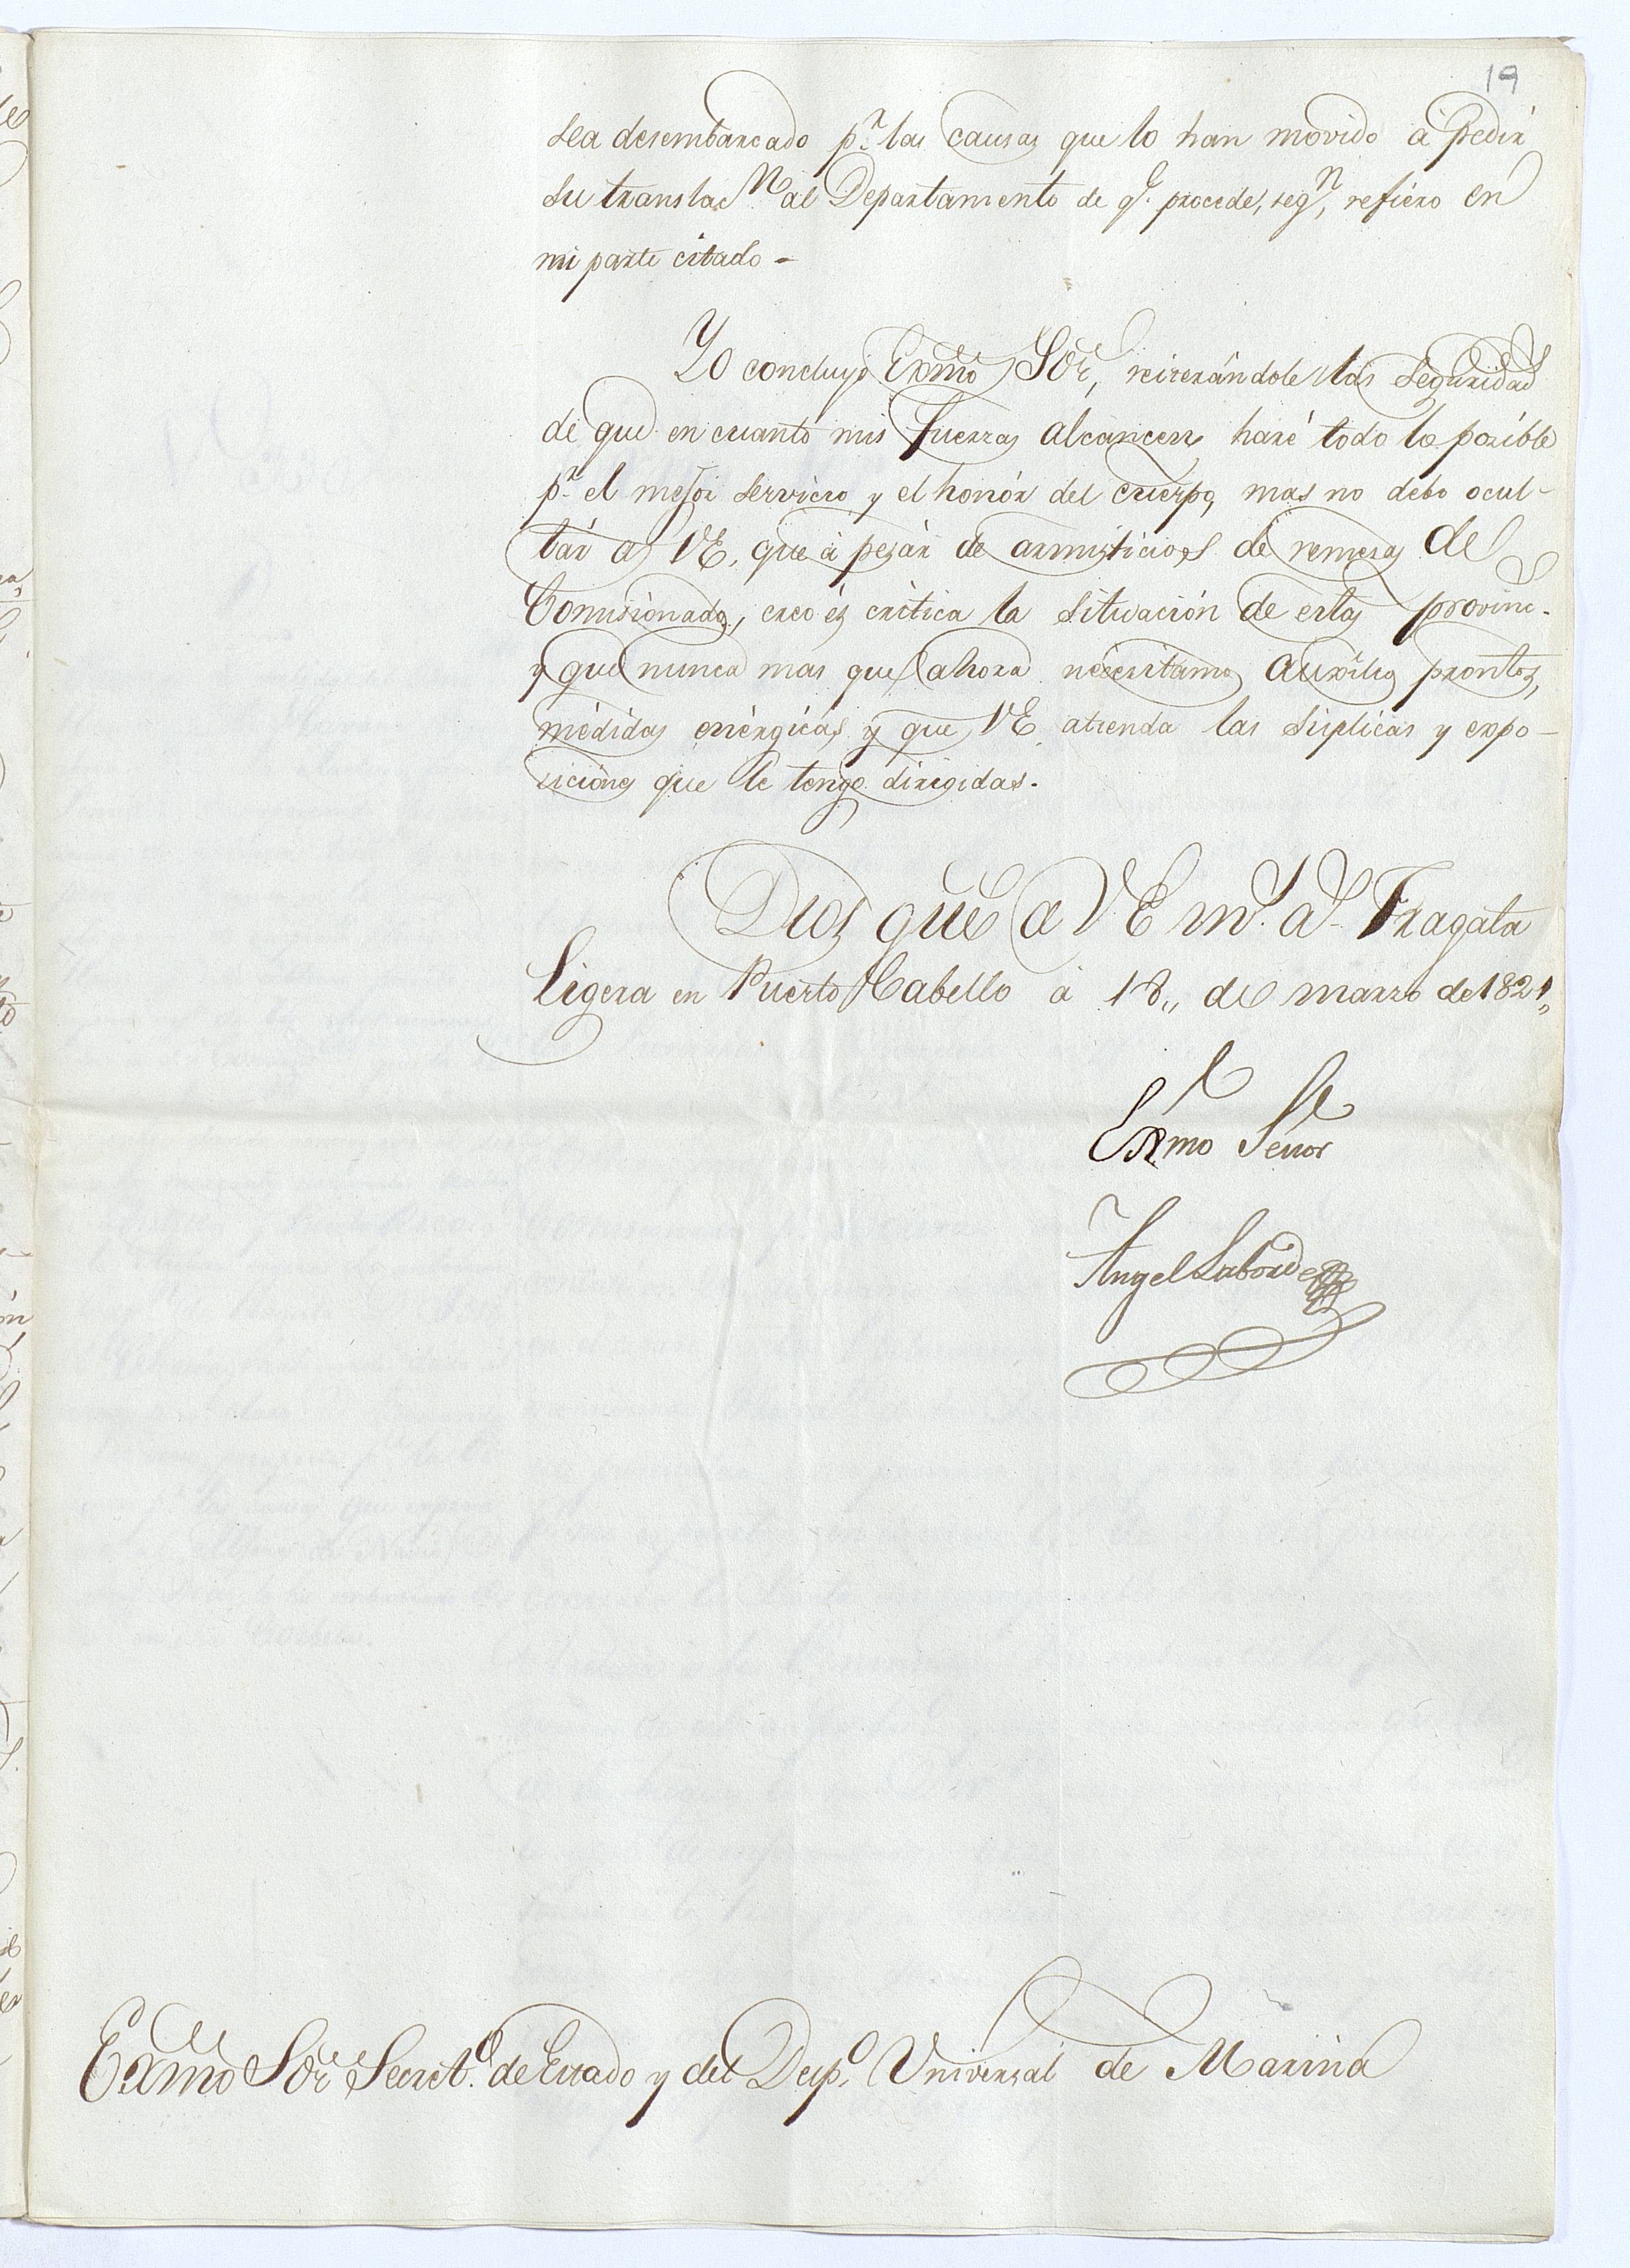 19
sea desembarcado p.ʳ las causas que lo han movido á pedir
su translac.ⁿ al Departamento de q.ᵉ procede, seg.ⁿ, refiero en
mi parte citado -
Yo concluyo Exmo Sor, reiterándole las seguridad.ˢ
de que en cuanto mis fuerzas alcancen, haré todo lo posible
p.ʳ el mejor servicio y el honór del cuerpo, mas no debo ocul-
tár a VE. que á pesár de armisticios de remesas de
Comisionados, creo és critica la situación de estas provinc.ˢ
y que nunca mas que ahora necesitamos auxilios prontos,
médidas enérgicas, y que VE. atienda las súplicas y expo-
siciones que le tengo dirigidas.
Dios gue a VE m.ˢ a.ˢ Fragata
Ligera en Puerto Cabello á 18,, de marzo de 1821,,
Exmo Señor
Angel Laborde
Exmo Sor Secret.º de Estado y del Desp.º Universal de Marina